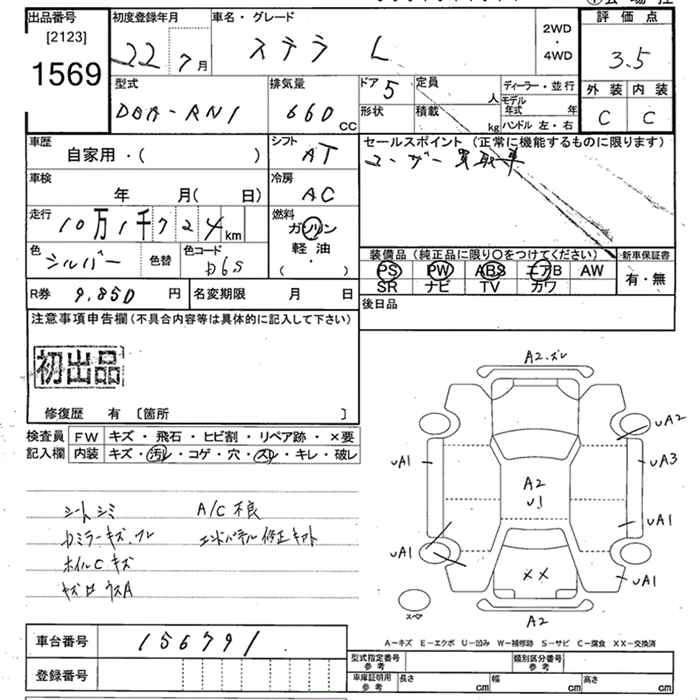 出品番号
[2123]
1569
初度登録年月
22 7月
車名・グレード
ステラ L
2WD
・
4WD
評価点
3.5
外装 内装
C C
型式
DBA-RN1
排気量
660 CC
ドア 5
形状
定員 人
積載 kg
ディーラー・並行
モデル年式 年
ハンドル 左・右
車歴
自家用・( )
シフト
AT
セールスポイント(正常に機能するものに限ります)
ユーザー買取車
車検
年 月( 日)
冷房
AC
走行
10万1千724km
燃料
ガソリン
軽油
・
( )
色
シルバー
色替
色コード
D6S
装備品(純正品に限り○をつけてください)
新車保証書
PS PW ABS エアB AW
SR ナビ TV カワ
有・無
R券 9,850 円
名変期限 月 日
後日品
注意事項申告欄(不具合内容等は具体的に記入して下さい)
初出品
修復歴 有 〔箇所 〕
検査員記入欄
FW キズ・飛石・ヒビ割・リペア跡・×要
内装 キズ・汚レ・コゲ・穴・スレ・キレ・破レ
シートシミ A/C不良
ホイルCキズ
A2.ズレ
UA2
UA1
UA3
A2
U1
UA1
UA1
UA1
XX
スペア
A2
A-キズ E-エクボ U-凹み W-補修跡 S-サビ C-腐食 XX-交換済
車台番号 156791
登録番号
型式指定番号
参考
類別区分番号
参考
車庫証明用
参考
長さ cm
幅 cm
高さ cm